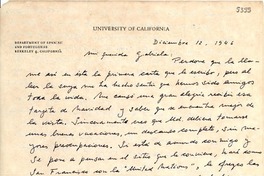 5355
UNIVERSITY OF CALIFORNIA
DEPARTMENT OF SPANISH
AND PORTUGUESE
BERKELEY 4, CALIFORNIA
Diciembre 10, 1946
Mi querida Gabriela:
Perdone que la lla-
me así en esta la primera carta que le escribo, pero al
leer la suya me ha hecho sentir que hemos sido amigos
toda la vida. Me causó una gran alegría recibir esa
tarjeta de Navidad y saber que se encuentra mejor de
la vista. Sinceramente creo que Ud. debiera tomarse
unas buenas vacaciones, un descanso completo, sin ma-
yores preocupaciones. Si está de acuerdo conmigo y
se pone a pensar en el sitio que le conviene, haré como
San Francisco con la "United Nations", le